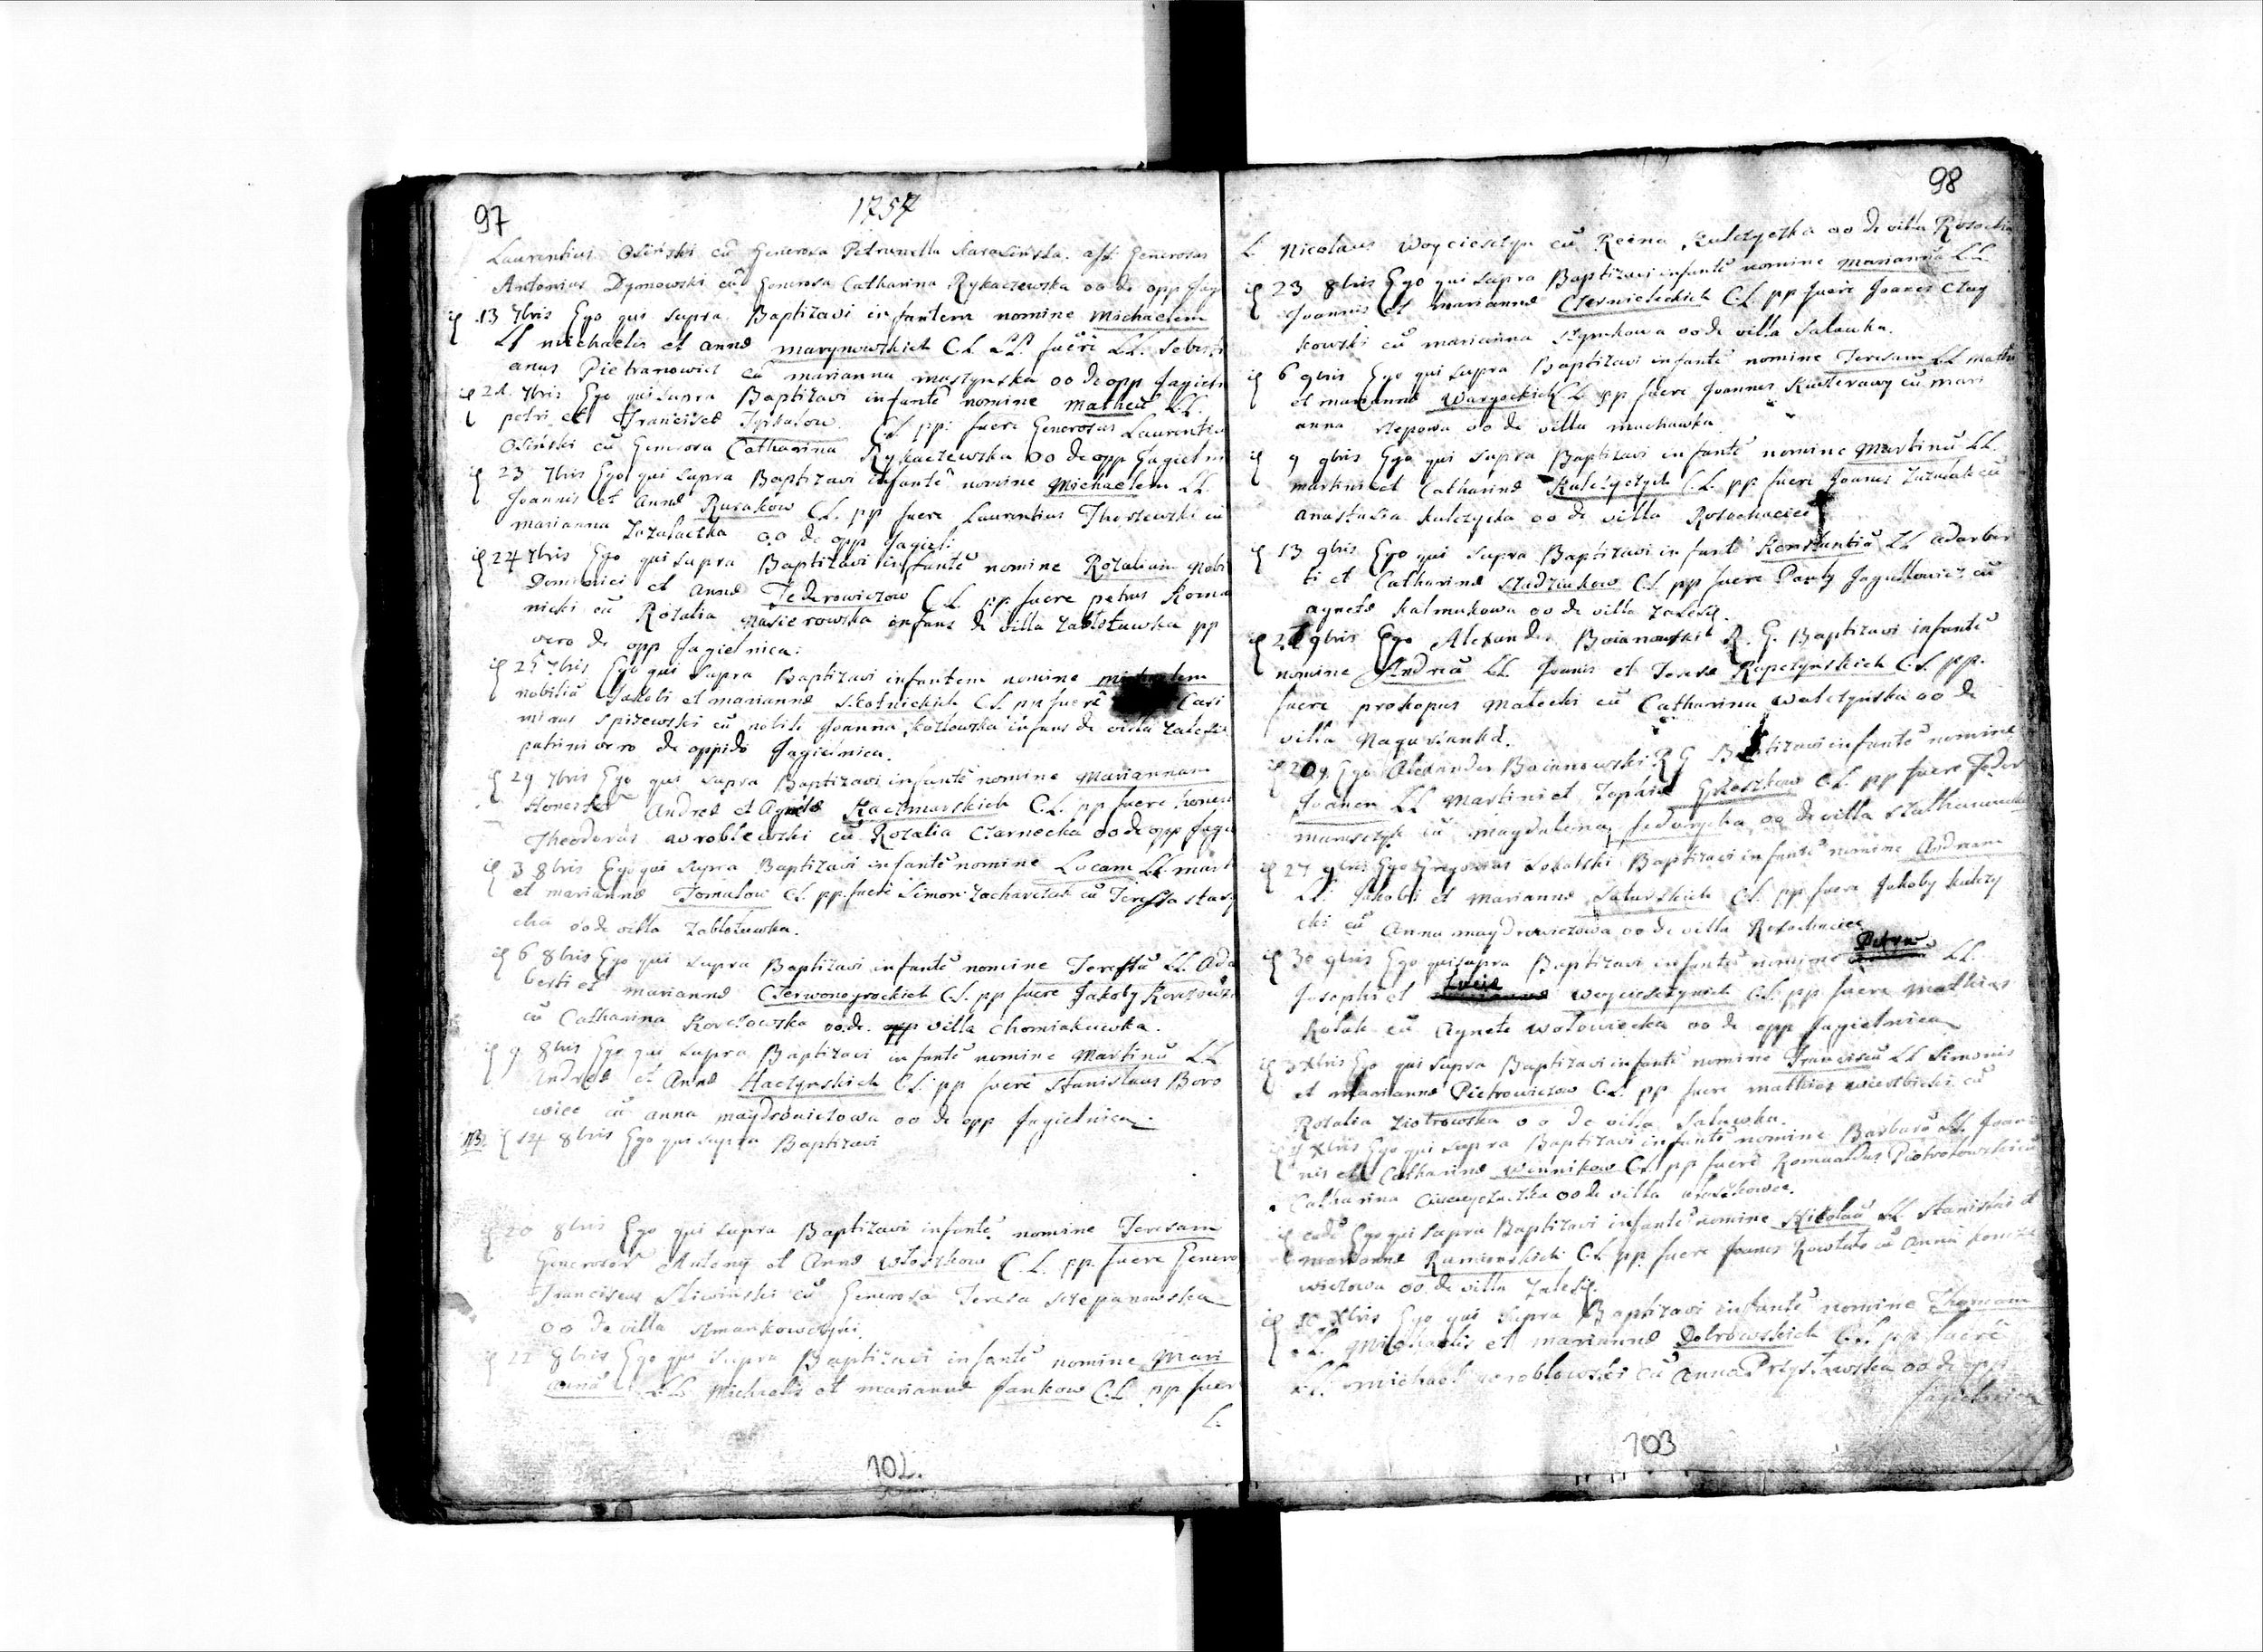 97
1757
Laurentius Osiński cū Generosa Petrunella Karasińska. ass: Generosus
Antonius Dymowski cū Generosa Catharina Rykaczewska oo de opp Jag
13 7bris Ego qui supra Baptizavi infantem nomine Michaelem
LL michaelis et annæ marynowskich C.L. LL. fuēre LL. Sebesti
anus Pietranowicz cū marianna muszynska oo de opp Jagieln
21. 7bris Ego qui supra Baptizavi infantē nomine Matheū LL.
petri et Franciscæ C.L. pp: fuere Generosus Laurentiu
Osiński cū Generosa Catharina Rykaczewska oo de opp Jagieln
23 7bris Ego qui supra Baptizavi infantē nomine Michaelem LL.
Joannis et annæ Rurakow C.L. pp fuere Laurentius cū
marianna Zazulaczka oo de opp Jagiel:
24 7bris Ego qui supra Baptizavi infantē nomine Rozaliam Nobi
Dominici et annæ Federowiczow C.L. pp. fuere petrus Korni
nicki cū Rozalia Nasierowska infans de villa Zabłotuwka pp
vero de opp Jagielnica:
25 7bris Ego qui supra Baptizavi infantem nomine
nobiliū Jakobi et mariannæ Skotnickich C.L. pp fuerē Casi
mirus Spizewski cū nobili Joanna Kozłowska infans de villa Zalesie
patrini vero de oppido Jagielnica.
29 7bris Ego qui supra Baptizavi infantē nomine Mariannam
Honestor Andreæ et Agnetæ Kaczmarskich C.L. pp fuere honest
Theodorus wroblewski cū Rozalia Czarnecka oo de opp Jagie
3 8bris Ego qui supra Baptizavi infantē nomine Lucam LL. mart
et mariannæ Tomalow C.L. pp. fuere Simon Zachareczuk cū Teressa stary
cka oo de villa Zabłotuwka.
6 8bris Ego qui supra Baptizavi infantē nomine Teressā LL. Ada
lberti et mariannæ Czerwonogrockich C.L. pp fuere Jakoby
cū Catharina oo de. villa Chomiakuwka.
9 8bris Ego qui supra Baptizavi infantē nomine Martinū LL
Andreæ et Annæ Haczynskich C.L. pp fuere Stanislaus Boro
wiec cū anna maydrowiczowa oo de opp Jagielnica
NB. 14 8bris Ego qui supra Baptizavi
20 8bris Ego qui supra Baptizavi infantē. nomine Teresam
Generosor Antony et Annæ Włoszkow C.L. pp. fuere Genero
Franciscus Sliwiński cū Generosa Teresa Szczepanowska
oo de villa
22 8bris Ego qui supra Baptizavi infantē nomine Mari
annā LL Michaelis et mariannæ Jankow C.L. pp fuer
L.
102.
98
L. Nicolaus Woycieszyn cū Reina Kulczycka oo de villa Rosocha
23 8bris Ego qui supra Baptizavi infantē nomine Mariannā LL.
Joannis et mariannæ Czernieleckich C.L. pp fuere Joanes Czay
kowski cū marianna Szymkowa oo de villa Saluwka.
6 9bris Ego qui supra Baptizavi infantē nomine Teresam LL mathi
et mariannæ C.L. pp fuere Joannes cū mari
anna oo de villa muchawka
9 9bris Ego qui supra Baptizavi infantē nomine Martinū LL.
martini et Catharinæ Kulczyckich C.L. pp. fuere Joanes Zazulak cū
anastasia Kulczycka oo de villa Rosochaciec
13 9bris Ego qui supra Baptizavi infantē Konstantiū LL adalber
ti et Catharinæ C.L. pp fuere Pauly cū
agnete Kalmukowa oo de villa Zalesie.
9bris Ego Alexander Boianowski R. G. Baptizavi infantē
nomine Andreā LL Joanis et Teresæ Rapczynskich C.L. pp.
fuere prokopus Matecki cū Catharina Walczynska oo de
villa Nagurzanka.
20 9. Ego Alexander Boianowski R G Baptizavi infantē nomine
Joanen LL Martini et Zophiæ C.L. pp fuere Feder
cū Magdalena oo de villa
27 9bris Ego Gregorius Sokalski Baptizavi infantē nomine Andream
LL: Jakobi et Mariannæ Saturskich C.L. pp fuere Jakoby Kulczy
cki cū Anna maydrowiczowa oo de villa Rosochaciec
30 9bris Ego qui supra Baptizavi infantē nomine Petrū LL.
Josephi et Luciæ Woycieszynich C.L. pp fuere Mathias
Kolak cū Agnete wołowiecka oo de opp Jagielnica
3 Xbris Ego qui supra Baptizavi infantē nomine Franciscū LL Simonis
et mariannæ Pietrowiczow C.L. pp fuere mathias wierzbicki cū
Rozalia Ziotrowska oo de villa Saluwka.
Xbris Ego qui supra Baptizavi infantē nomine Barbarā LL Joan
nis et Catharinæ Winnikow C.L. pp fuere Romualdus Piotrowski cū
Catharina oo de villa
eadē Ego qui supra Baptizavi infantē nomine Nikolaū LL Stanislai et
mariannæ Rumienskich C.L. pp. fuere Joanes cū Anna
wiczowa oo. de villa Zalesie.
10 Xbris Ego qui supra Baptizavi infantē nomine Thomam
LL. Michaelis et mariannæ Dobrowskich C.L. pp fuere
LL. michael wroblowski cū Anna oo de opp
Jagielnica
103